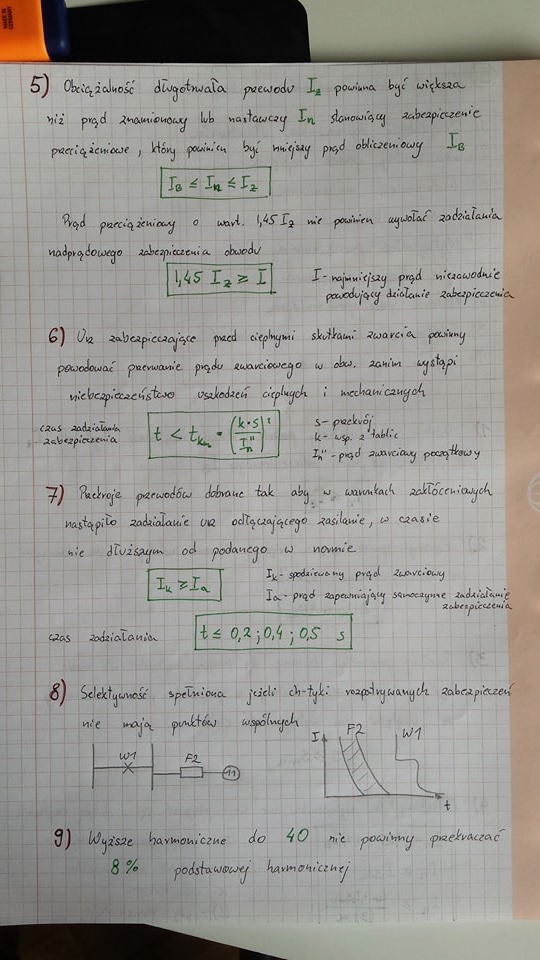 MADE IN GERMANY
5) Obciążalność długotrwała przewodu Iz powinna być większa
niż prąd znamionowy lub nastawczy In stanowiący zabezpieczenie
przeciążeniowe, który powinien być mniejszy prąd obliczeniowy IB
IB ≤ In ≤ Iz
Prąd przeciążeniowy o wart. 1,45 Iz nie powinien wywołać zadziałania
nadprądowego zabezpieczenia obwodu
1,45 Iz ≥ I
I - najmniejszy prąd niezawodnie
powodujący działanie zabezpieczenia
6) Urz zabezpieczające przed cieplnymi skutkami zwarcia powinny
powodować przerwanie prądu zwarciowego w obw. zanim wystąpi
niebezpieczeństwo uszkodzeń cieplnych i mechanicznych
czas zadziałania
zabezpieczenia
t < tkm = (k·s / In'')²
s - przekrój
k - wsp. z tablic
In'' - prąd zwarciowy początkowy
7) Przekroje przewodów dobrane tak aby w warunkach zakłóceniowych
nastąpiło zadziałanie urz odłączającego zasilanie, w czasie
nie dłuższym od podanego w normie
Ik ≥ Ia
Ik - spodziewany prąd zwarciowy
Ia - prąd zapewniający samoczynne zadziałanie
zabezpieczenia
czas zadziałania
t ≤ 0,2 ; 0,4 ; 0,5 s
8) Selektywność spełniona jeżeli ch-tyki rozpatrywanych zabezpieczeń
nie mają punktów wspólnych
W1 F2 11
I F2 W1 t
9) Wyższe harmoniczne do 40 nie powinny przekraczać
8% podstawowej harmonicznej